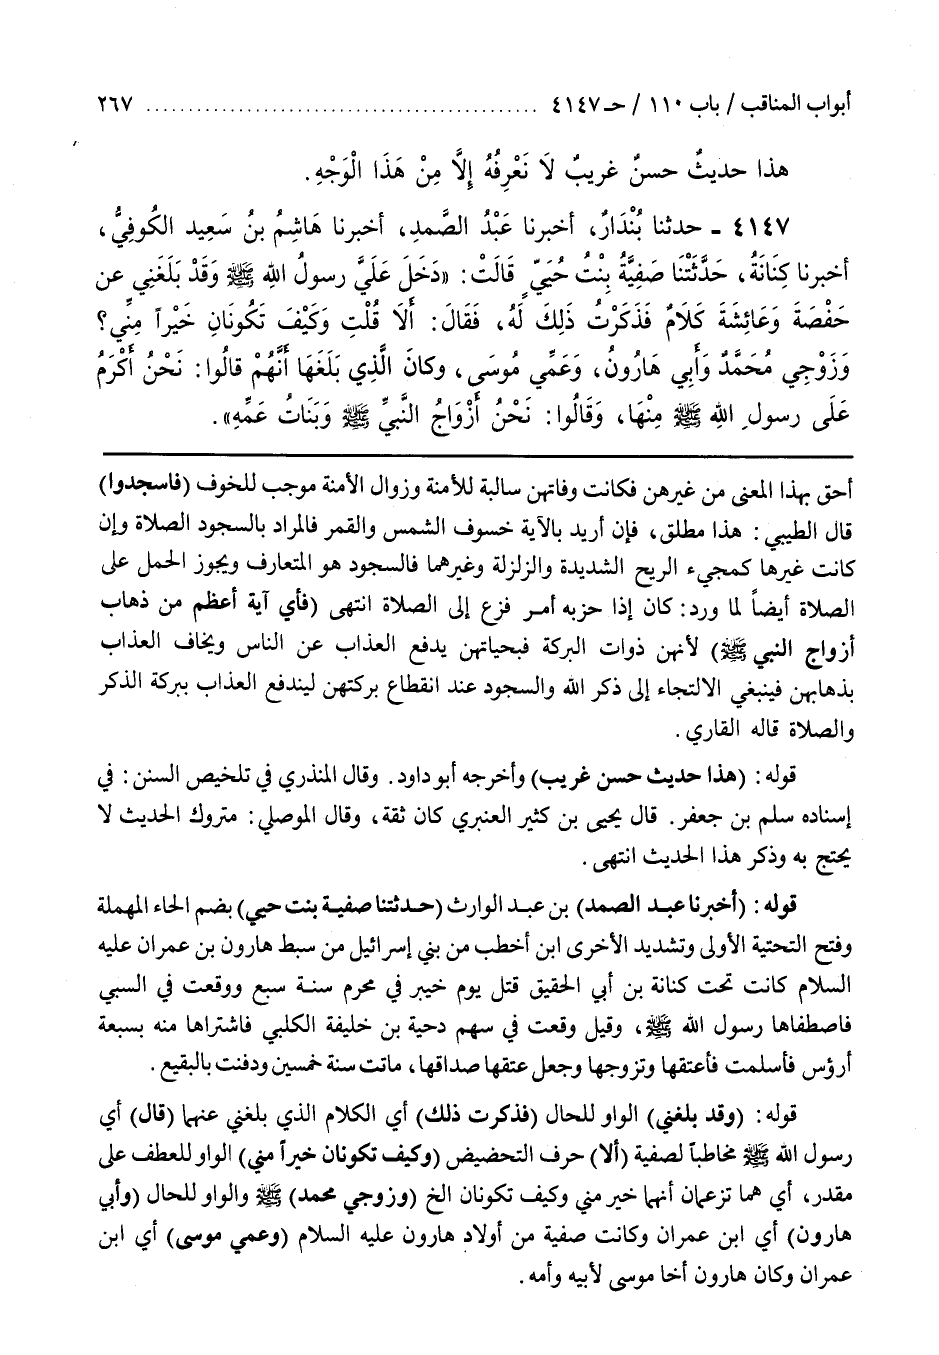 أبواب المناقب / باب ١١٠ / حـ ٤١٤٧ ........................................ ٢٦٧
هذا حديثٌ حسنٌ غريبٌ لَا نَعْرِفُهُ إِلَّا مِنْ هَذَا الْوَجْهِ.
٤١٤٧ - حدثنا بُنْدَارٌ، أخبرنا عَبْدُ الصَّمدِ، أخبرنا هَاشِمُ بنُ سَعِيد الكُوفِيُّ،
أخبرنا كِنَانَةُ، حَدَّثَتْنَا صَفِيَّةُ بِنْتُ حُيَيٍّ قَالَتْ: «دَخَلَ عَلَيَّ رسولُ اللهِ ﷺ وَقَدْ بَلَغَنِي عن
حَفْصَةَ وَعَائِشَةَ كَلَامٌ فَذَكَرْتُ ذَلِكَ لَهُ، فَقَالَ: أَلَا قُلْتِ وَكَيْفَ تَكُونَانِ خَيْراً مِنِّي؟
وَزَوْجِي مُحَمَّدٌ وَأَبِي هَارُونُ، وَعَمِّي مُوسَى، وكانَ الَّذِي بَلَغَهَا أَنَّهُمْ قالُوا: نَحْنُ أَكْرَمُ
عَلَى رسولِ اللهِ ﷺ مِنْهَا، وَقَالُوا: نَحْنُ أَزْوَاجُ النَّبِيِّ ﷺ وَبَنَاتُ عَمِّهِ».
أحق بهذا المعنى من غيرهن فكانت وفاتهن سالبة للأمنة وزوال الأمنة موجب للخوف (فاسجدوا)
قال الطيبي: هذا مطلق، فإن أريد بالآية خسوف الشمس والقمر فالمراد بالسجود الصلاة وإن
كانت غيرها كمجيء الريح الشديدة والزلزلة وغيرهما فالسجود هو المتعارف ويجوز الحمل على
الصلاة أيضاً لما ورد: كان إذا حزبه أمر فزع إلى الصلاة انتهى (فأي آية أعظم من ذهاب
أزواج النبي ﷺ) لأنهن ذوات البركة فبحياتهن يدفع العذاب عن الناس ويخاف العذاب
بذهابهن فينبغي الالتجاء إلى ذكر الله والسجود عند انقطاع بركتهن ليندفع العذاب ببركة الذكر
والصلاة قاله القاري.
قوله: (هذا حديث حسن غريب) وأخرجه أبو داود. وقال المنذري في تلخيص السنن: في
إسناده سلم بن جعفر. قال يحيى بن كثير العنبري كان ثقة، وقال الموصلي: متروك الحديث لا
يحتج به وذكر هذا الحديث انتهى.
قوله: (أخبرنا عبد الصمد) بن عبد الوارث (حدثتنا صفية بنت حيي) بضم الحاء المهملة
وفتح التحتية الأولى وتشديد الأخرى ابن أخطب من بني إسرائيل من سبط هارون بن عمران عليه
السلام كانت تحت كنانة بن أبي الحقيق قتل يوم خيبر في محرم سنة سبع ووقعت في السبي
فاصطفاها رسول الله ﷺ، وقيل وقعت في سهم دحية بن خليفة الكلبي فاشتراها منه بسبعة
أرؤس فأسلمت فأعتقها وتزوجها وجعل عتقها صداقها، ماتت سنة خمسين ودفنت بالبقيع.
قوله: (وقد بلغني) الواو للحال (فذكرت ذلك) أي الكلام الذي بلغني عنهما (قال) أي
رسول الله ﷺ مخاطباً لصفية (ألا) حرف التحضيض (وكيف تكونان خيراً مني) الواو للعطف على
مقدر، أي هما تزعمان أنهما خير مني وكيف تكونان الخ (وزوجي محمد) ﷺ والواو للحال (وأبي
هارون) أي ابن عمران وكانت صفية من أولاد هارون عليه السلام (وعمي موسى) أي ابن
عمران وكان هارون أخا موسى لأبيه وأمه.